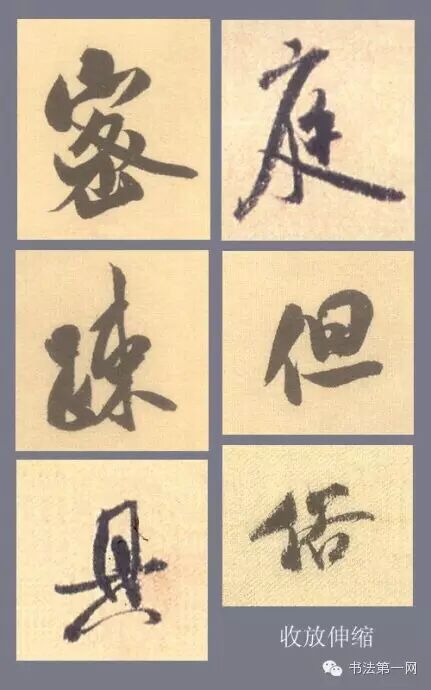 密
庭
疎
但
具
俗
收放伸缩
书法第一网